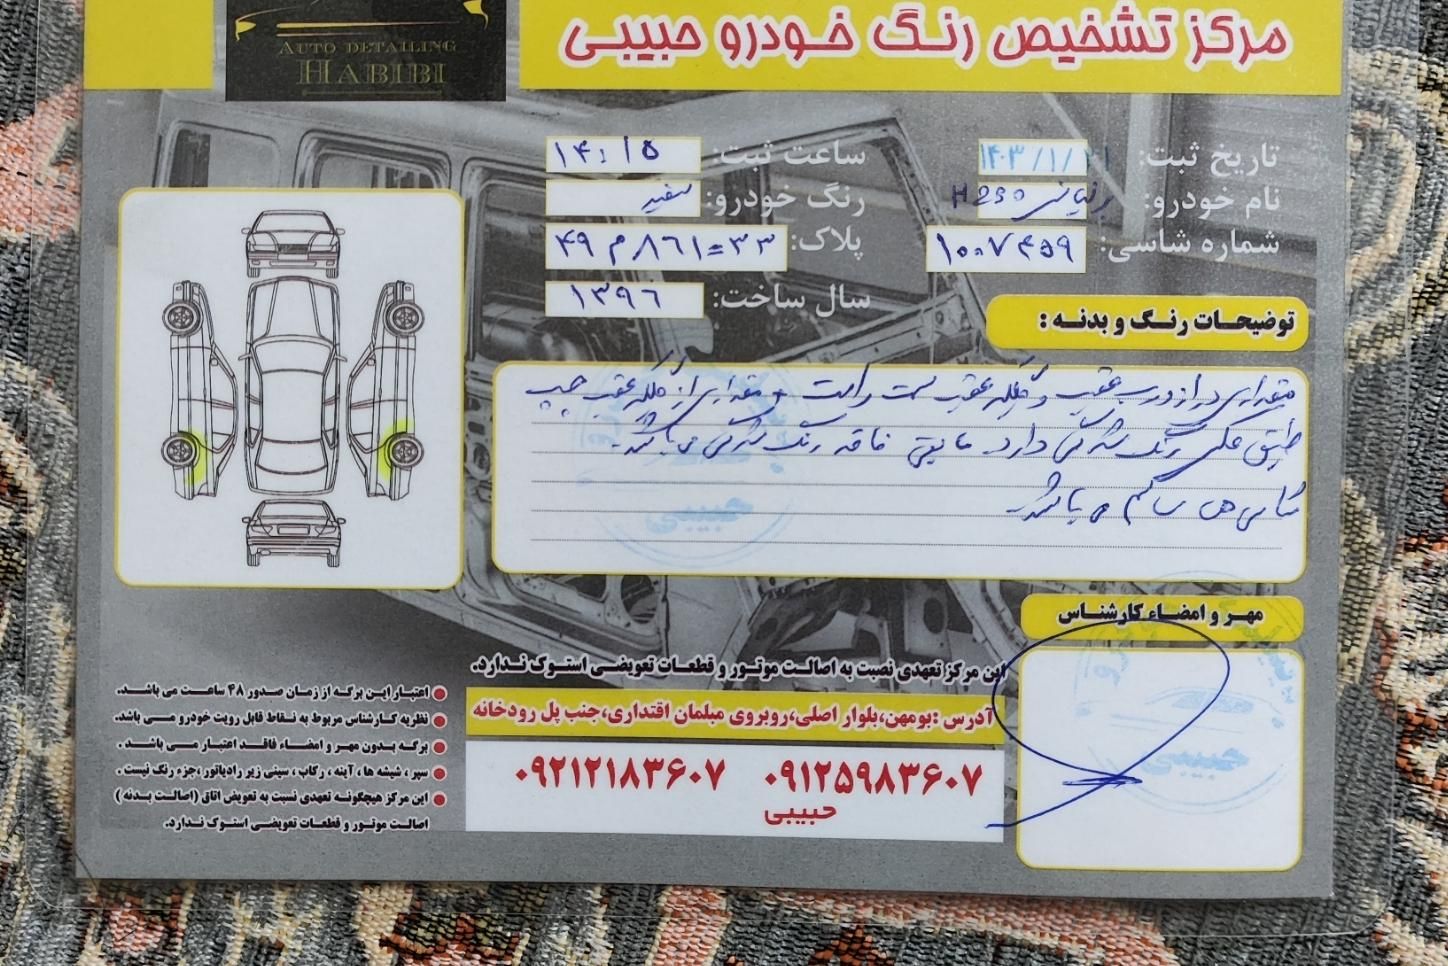 AUTO DETAILING
HABIBI
مرکز تشخیص رنگ خودرو حبیبی
تاریخ ثبت: ۱۴۰۳/۱/
ساعت ثبت: ۱۴:۱۵
نام خودرو: H230
رنگ خودرو: سفید
شماره شاسی: ۱۰۰۷۴۵۹
پلاک: ۴۹ م ۸۶۱ = ۳۳
سال ساخت: ۱۳۹۶
توضیحات رنگ و بدنه :
مقداری از درب عقب و گلگیر عقب سمت راست و مقداری از گلگیر عقب چپ
طبق عکس رنگ شدگی دارد. مابقی فاقد رنگ شدگی می باشد.
شاسی ها سالم می باشد
مهر و امضاء کارشناس
حبیبی
این مرکز تعهدی نسبت به اصالت موتور و قطعات تعویضی استوک ندارد.
آدرس :بومهن،بلوار اصلی،روبروی مبلمان اقتداری،جنب پل رودخانه
۰۹۱۲۵۹۸۳۶۰۷ ۰۹۲۱۲۱۸۳۶۰۷
حبیبی
اعتبار این برگه از زمان صدور ۴۸ ساعت می باشد.
نظریه کارشناس مربوط به نقاط قابل رویت خودرو می باشد.
برگه بدون مهر و امضاء فاقد اعتبار می باشد .
سپر ، شیشه ها ، آینه ، رکاب ، سینی زیر رادیاتور ،جزء رنگ نیست .
این مرکز هیچگونه تعهدی نسبت به تعویض اتاق (اصالت بدنه )
اصالت موتور و قطعات تعویضی استوک ندارد.